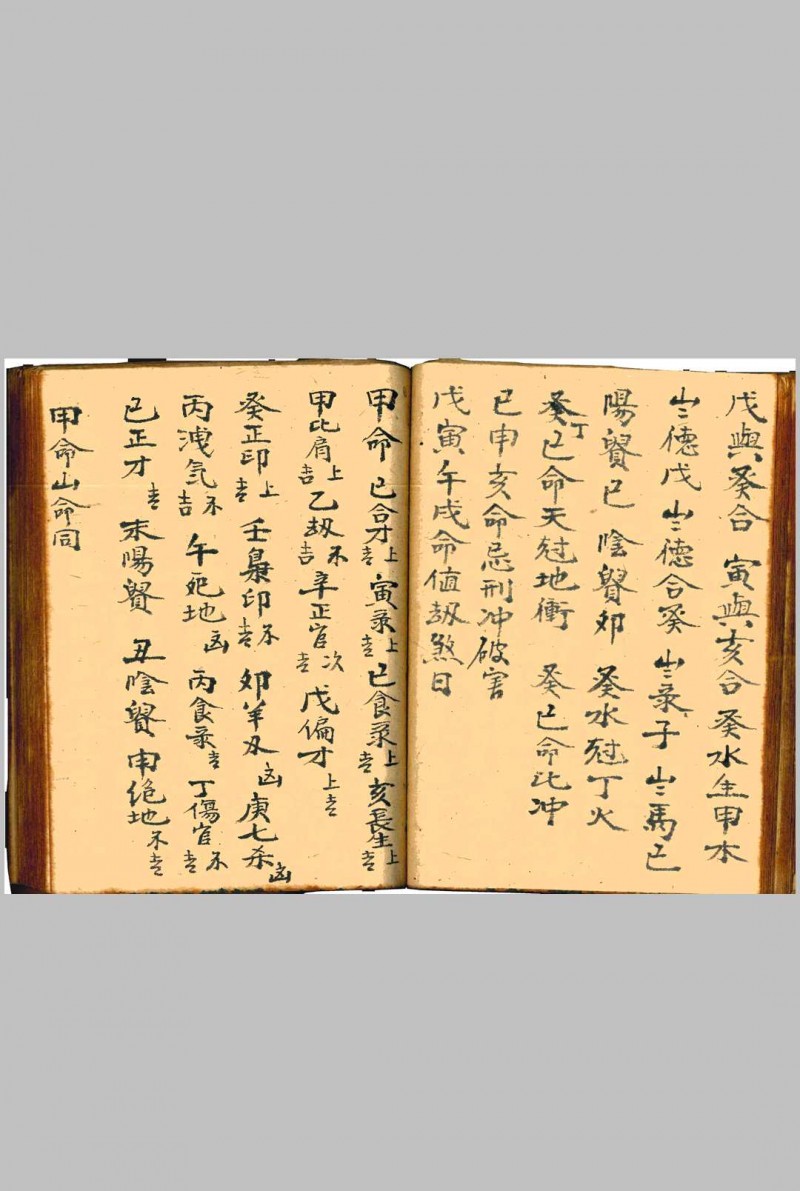 戊與癸合 寅與亥合 癸水生甲木
岦德戊 岦德合癸 岦彔子 岦馬巳
陽貿巳 陰貿卯 癸水尅丁火
癸丁巳命天尅地衝 癸巳命比冲
巳申亥命忌刑冲破害
戊寅午戌命值刼煞日
甲命 己合才上吉 寅彔上吉 巳食彔上吉 亥長生上吉
甲比肩上吉 乙刼不吉 辛正官次吉 戊偏才上吉
癸正印上吉 壬梟印不吉 卯羊刄凶 庚七杀凶
丙洩气不吉 午死地凶 丙食彔吉 丁傷官不吉
己正才吉 未陽貿 丑陰貿 申绝地不吉
甲命山命同